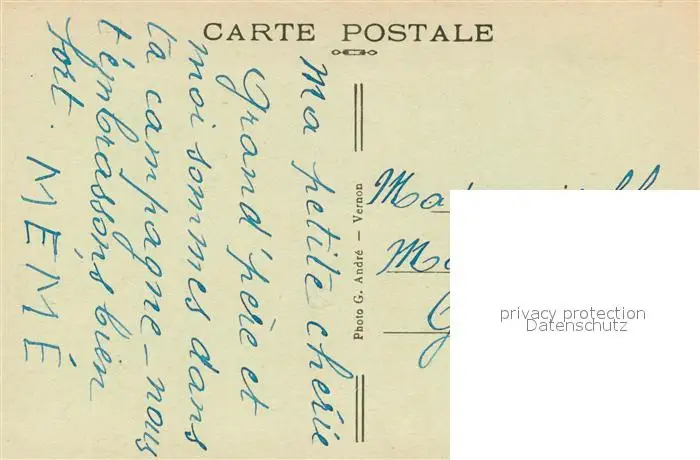 CARTE POSTALE
Ma petite chérie
Grand'père et
moi sommes dans
ta campagne_nous
t'embrassons bien
fort.
MEMÉ
Photo G. André — Vernon
privacy protection
Datenschutz